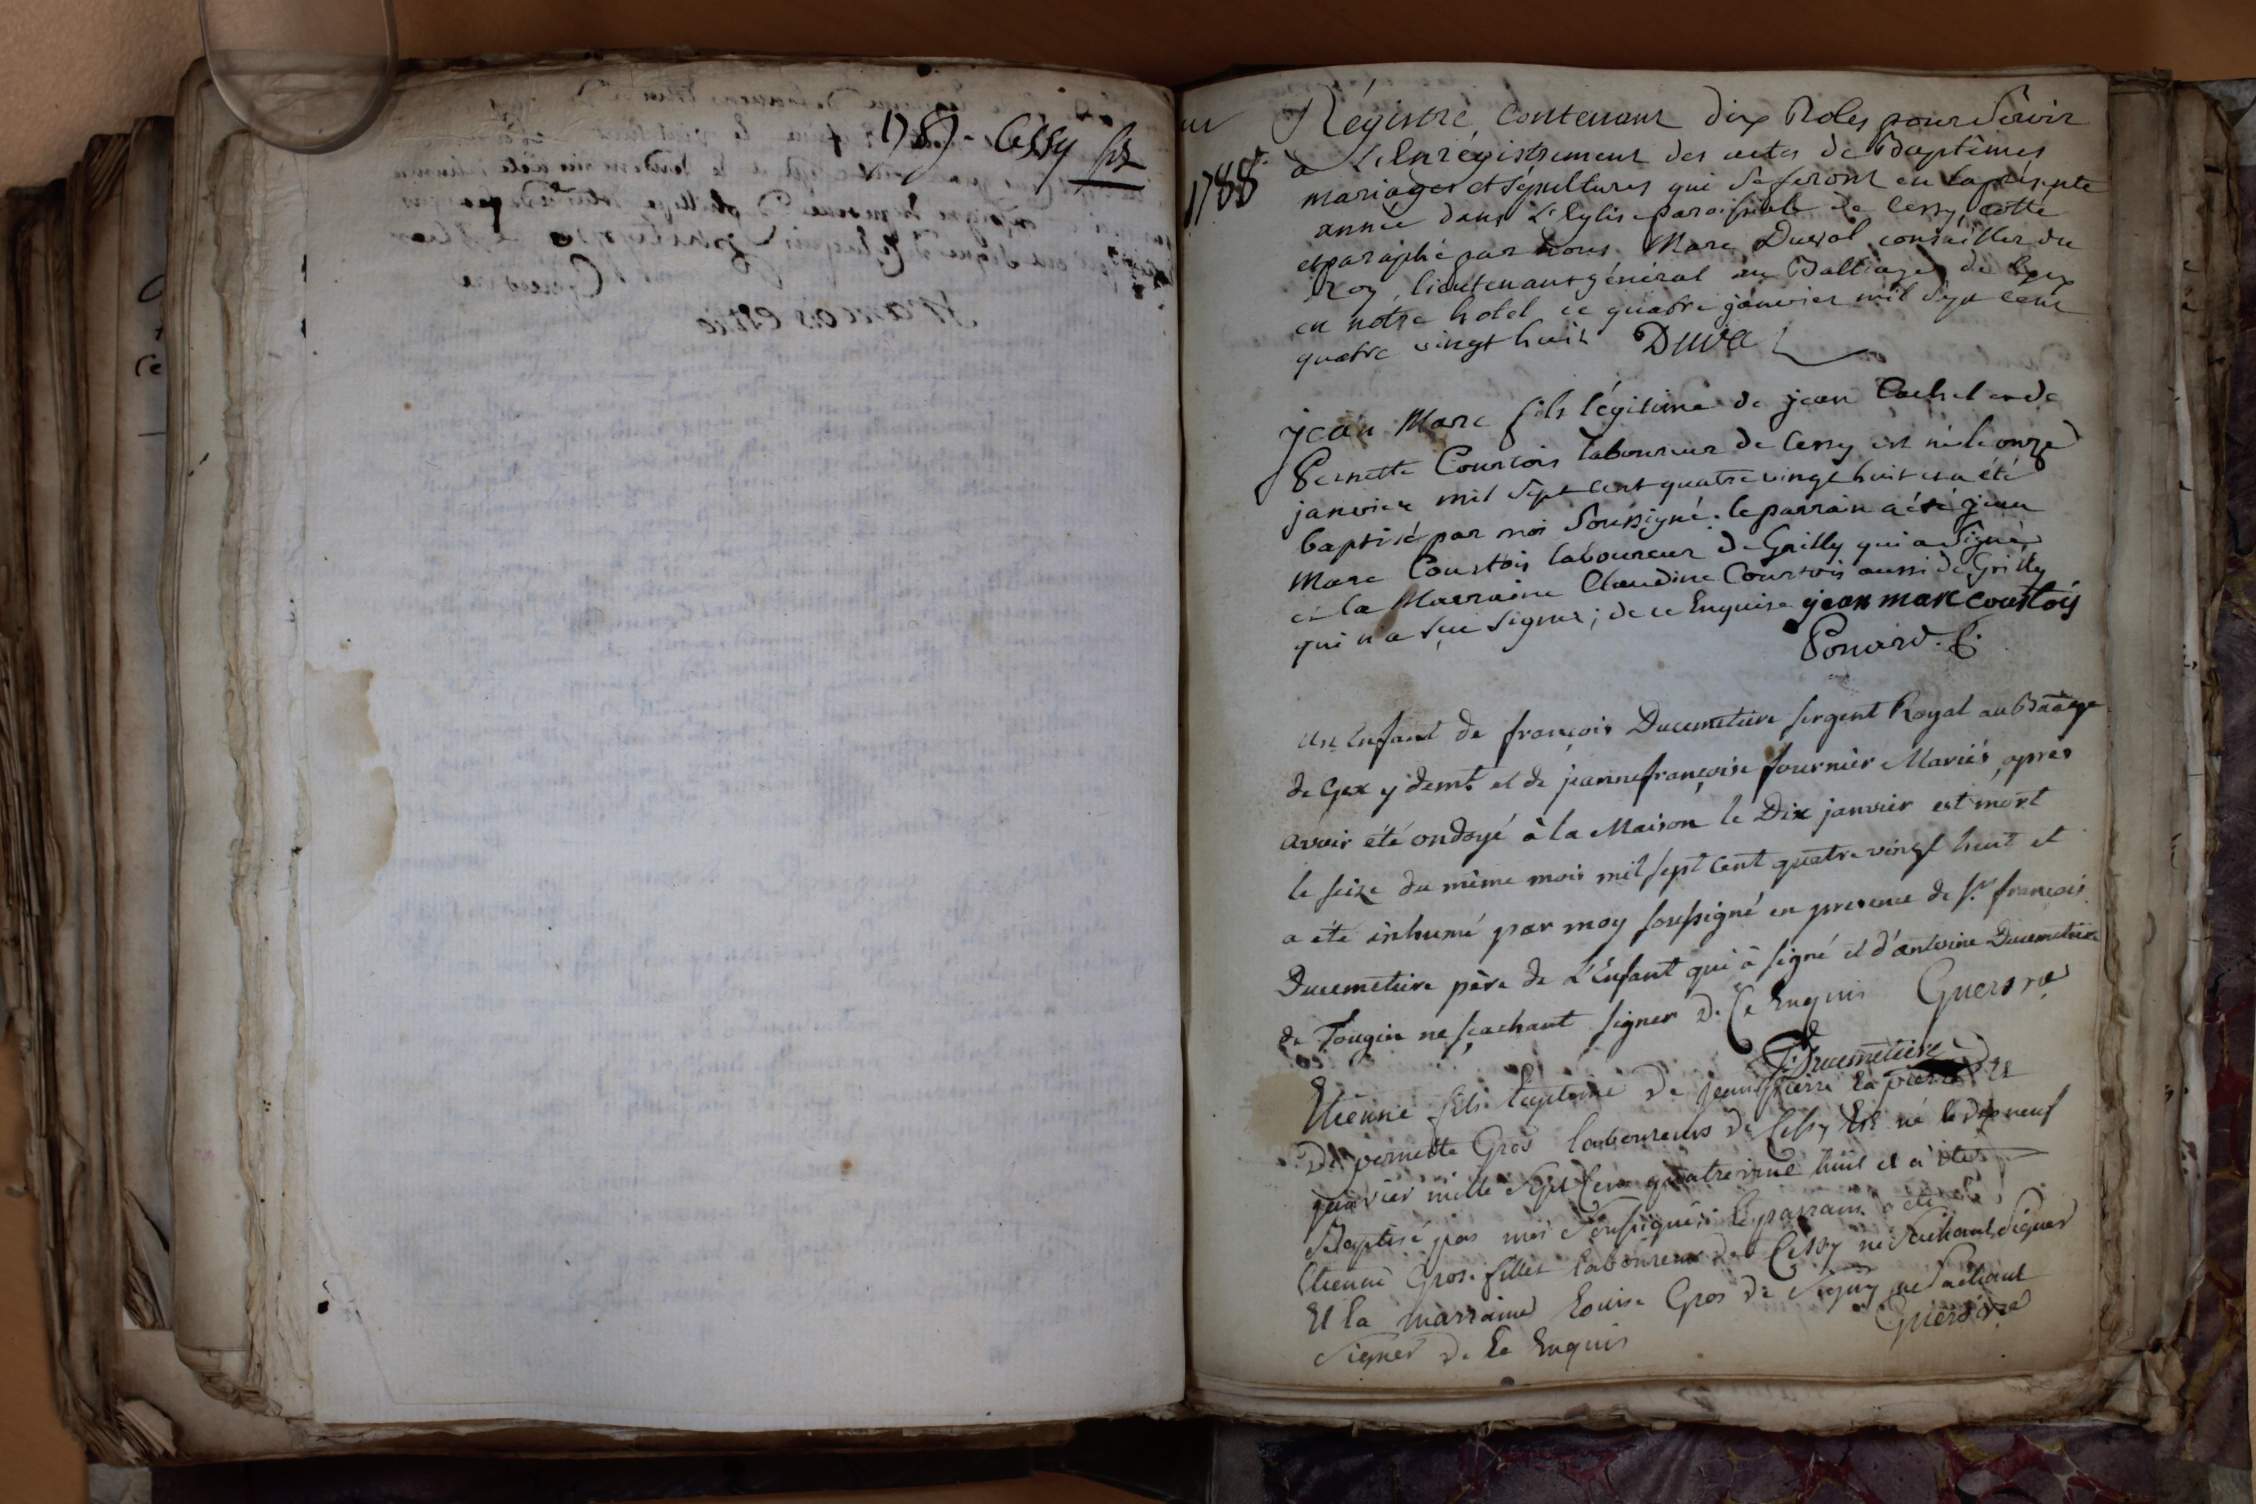 1787 - Cessy
1788
Régistre contenant dix Roles pour servir
à L'Enregistrement des actes de Baptêmes
mariages et sépultures qui se feront en la présente
année dans L'Eglise paroissiale de Cessy, cotté
et paraphé par Nous Marc Duval conseiller du
Roy, lieutenant général au Balliage de Gex
en notre hotel ce quatre janvier mil sept cent
quatre vingt huit Duval
jean Marc fils légitime de jean et de
Pernette Courtois laboureur de Cessy est né le onze
janvier mil sept cent quatre vingt huit et a été
baptisé par moi soussigné. le parrain a été jean
Marc Courtois laboureur de Grilly qui a signé
et la Marraine Claudine Courtois aussi de Grilly
qui n'a sçu signer; de ce Enquise jean marc courtois
Ponard. C.
Un Enfant de françois Ducimetiere sergent Royal au Baage
de Gex y demt. et de jeanne françoise fournier Mariés, après
avoir été ondoyé à la Maison le Dix janvier est mort
le seize du même mois mil sept cent quatre vingt huit et
a été inhumé par moy soussigné en presence de Sr. françois
Ducimetiere père de L'Enfant qui à signé et d'antoine Ducimetiere
de Tougin ne sçachant signer De Ce Enquis Guersvre
Ducimetiere
Etienne fils legitime De Jean Pierre la pierre Et
De pernette Gros laboureurs de Cessy Est né le dix neuf
janvier mille sept Cent quatre vint huit et à été
Baptisé par moi soussigné; le parrain a été
Etienne Gros fillet laboureur de Cessy ne sachant signer
Et la marraine Louise Gros de Segny ne sachant
signer De Ce Enquis Guersvre